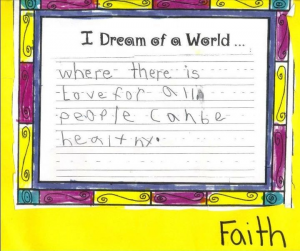 I Dream of a World ...
where there is
Love for all
people can be
healthy.
Faith